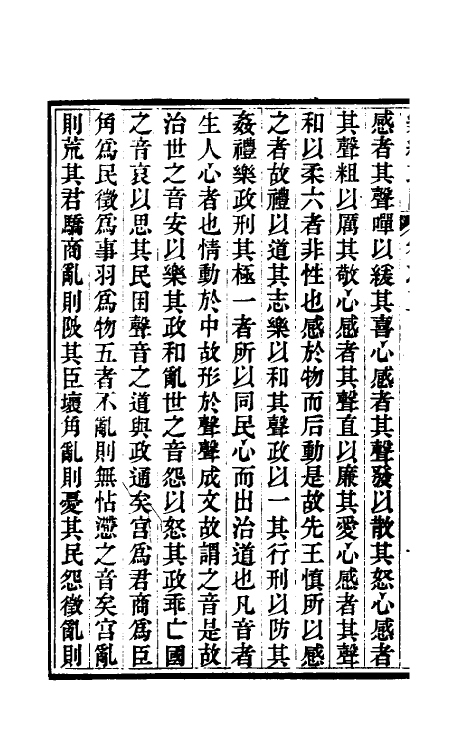 感者其聲嘽以緩其喜心感者其聲發以散其怒心感者
其聲粗以厲其敬心感者其聲直以廉其愛心感者其聲
和以柔六者非性也感於物而后動是故先王慎所以感
之者故禮以道其志樂以和其聲政以一其行刑以防其
姦禮樂政刑其極一者所以同民心而出治道也凡音者
生人心者也情動於中故形於聲聲成文故謂之音是故
治世之音安以樂其政和亂世之音怨以怒其政乖亡國
之音哀以思其民困聲音之道與政通矣宮爲君商爲臣
角爲民徵爲事羽爲物五者不亂則無怗懘之音矣宮亂
則荒其君驕商亂則陂其臣壞角亂則憂其民怨徵亂則